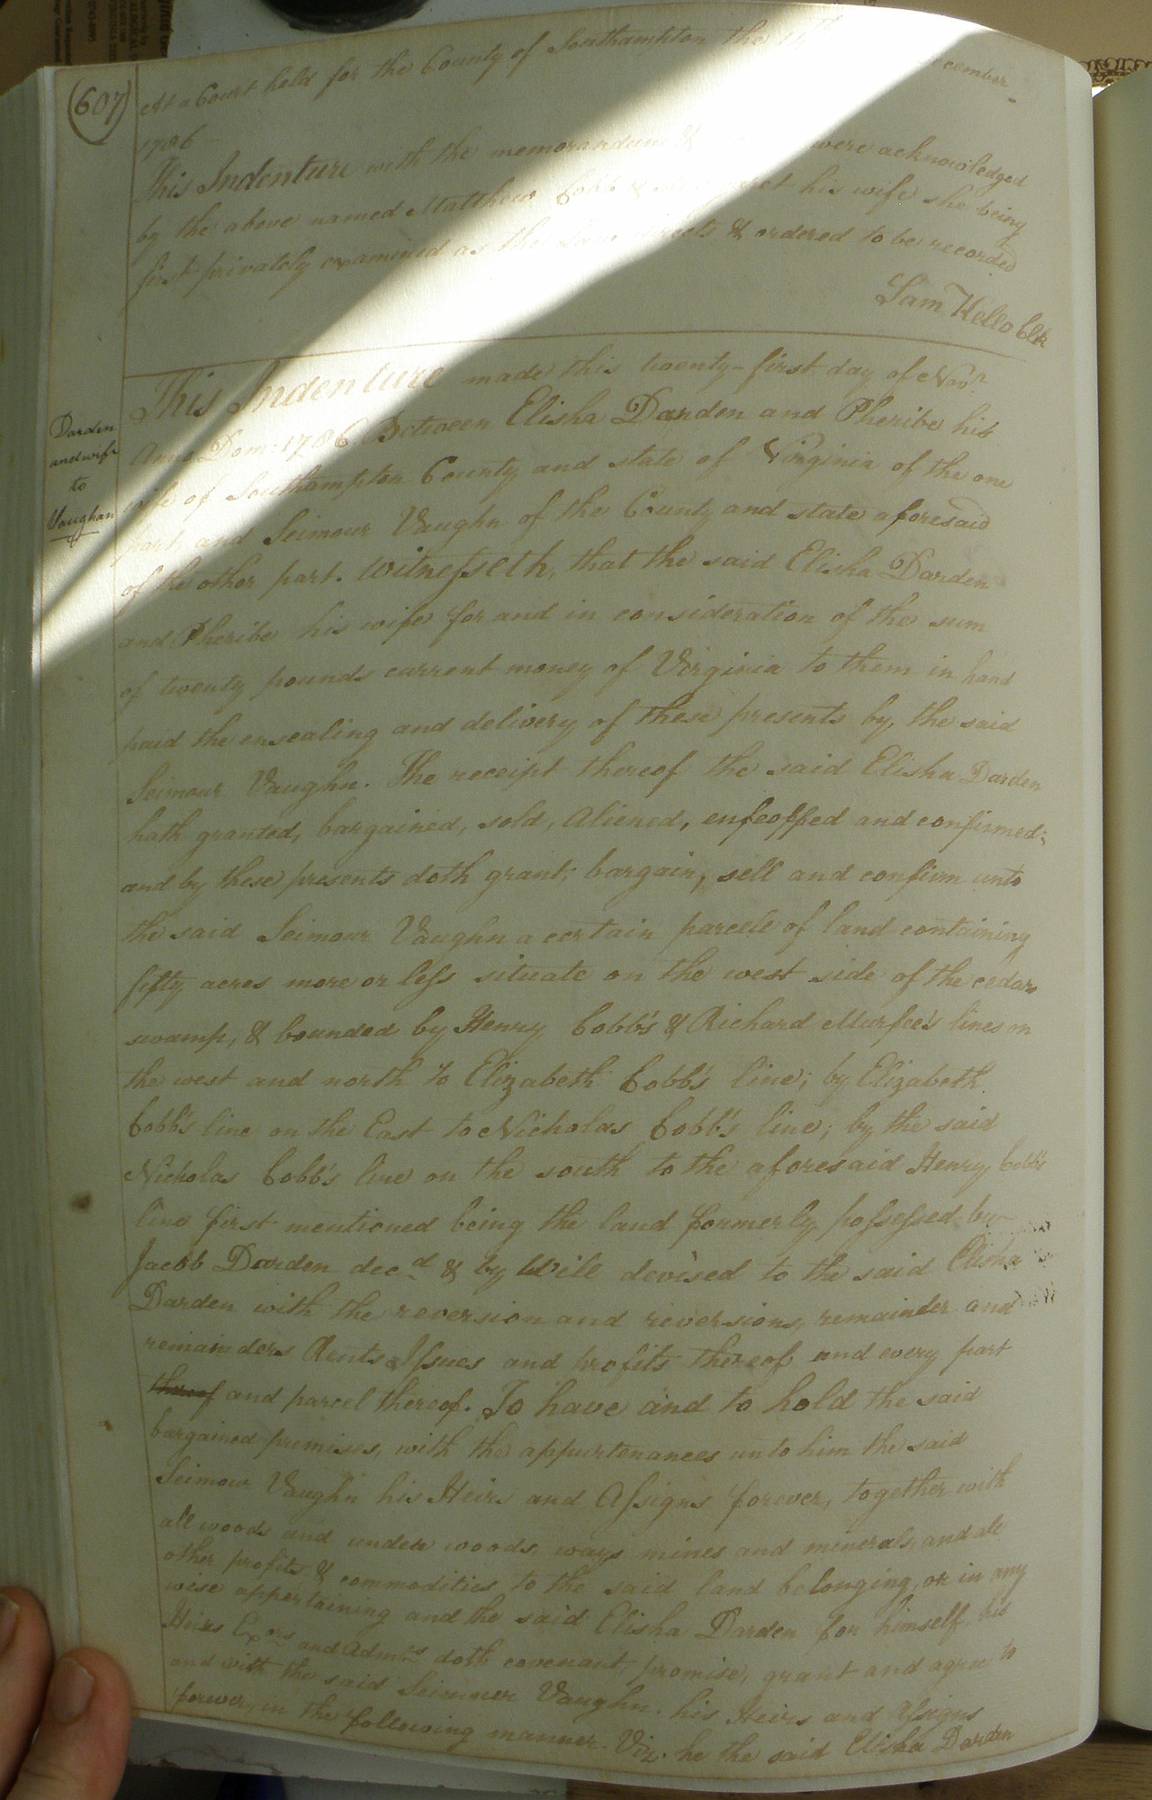 (607)
At a Court held for the County of Southampton the cember
1786
This Indenture with the memorandum & were acknowledged
by the above named Matthew Cobb & his wife she being
first privately examined as the Law directs & ordered to be recorded
Sam Kello Clk
Darden
and wife
to
Vaughan
This Indenture made this twenty-first day of Novr
Anno Dom: 1786 Between Elisha Darden and Pheribe his
wife of Southampton County and state of Virginia of the one
part, and Seimour Vaughn of the County and state aforesaid
of the other part. Witnesseth, that the said Elisha Darden
and Pheribe his wife for and in consideration of the sum
of twenty pounds current money of Virginia to them in hand
paid the ensealing and delivery of these presents by the said
Seimour Vaughn. The receipt thereof the said Elisha Darden
hath granted, bargained, sold, aliened, enfeoffed and confirmed;
and by these presents doth grant bargain, sell and confirm unto
the said Seimour Vaughn a certain parcele of land containing
fifty acres more or less situate on the west side of the cedar
swamp, & bounded by Henry Cobb's & Richard Murfee's lines on
the west and north to Elizabeth Cobb's line; by Elizabeth
Cobb's line on the East to Nicholas Cobb's line; by the said
Nicholas Cobb's line on the south to the aforesaid Henry Cobb's
line first mentioned being the land formerly possessed by
Jacob Darden decd & by Will devised to the said Elisha
Darden with the reversion and reversions, remainder and
remainders Rents Issues and profits thereof and every part
thereof and parcel thereof. To have and to hold the said
bargained premises, with the appurtenances unto him the said
Seimour Vaughn his Heirs and Assigns forever, together with
all woods and under woods, ways mines and minerals, and all
other profits & commodities, to the said land belonging, or in any
wise appertaining and the said Elisha Darden for himself his
Heirs Exors and Admrs doth covenant, promise, grant and agree to
and with the said Seimner Vaughn, his Heirs and Assigns
forever, in the following manner. Viz. he the said Elisha Darden